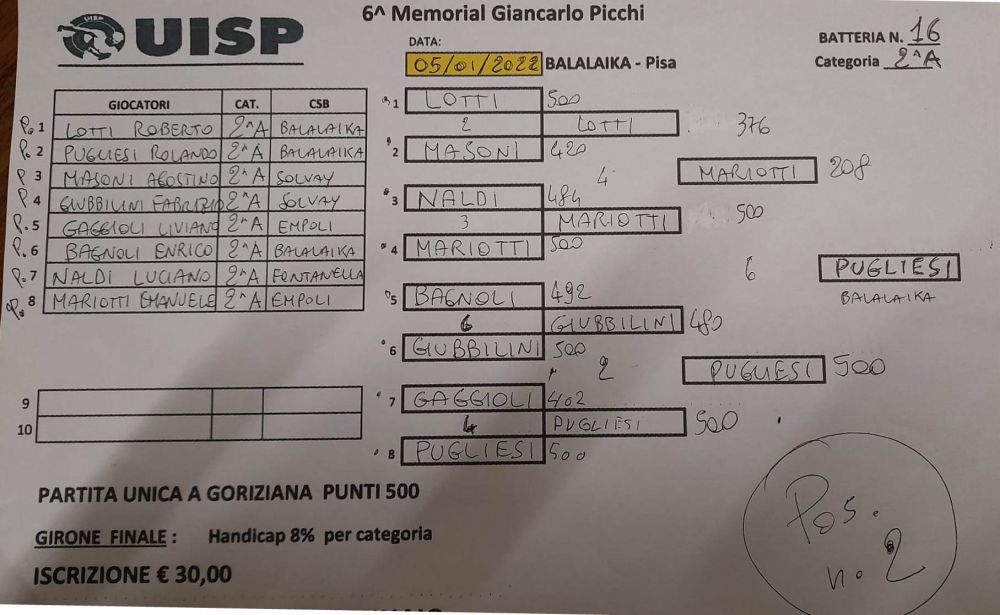 6^ Memorial Giancarlo Picchi
UISP
DATA:
05/01/2022 BALALAIKA - Pisa
BATTERIA N. 16
Categoria 2^A
GIOCATORI CAT. CSB
P. 1 LOTTI ROBERTO 2^A BALALAIKA
P. 2 PUGLIESI ROLANDO 2^A BALALAIKA
P 3 MASONI AGOSTINO 2^A SOLVAY
P 4 GIUBBILINI FABRIZIO 2^A SOLVAY
P. 5 GAGGIOLI LIVIANO 2^A EMPOLI
P. 6 BAGNOLI ENRICO 2^A BALALAIKA
P. 7 NALDI LUCIANO 2^A FONTANELLA
P. 8 MARIOTTI EMANUELE 2^A EMPOLI
9
10
1 LOTTI 500
2 LOTTI 376
2 MASONI 420
4 MARIOTTI 208
3 NALDI 484
3 MARIOTTI 500
4 MARIOTTI 500
6 PUGLIESI
BALALAIKA
5 BAGNOLI 492
6 GIUBBILINI 480
6 GIUBBILINI 500
2 PUGLIESI 500
7 GAGGIOLI 402
4 PUGLIESI 500
8 PUGLIESI 500
PARTITA UNICA A GORIZIANA PUNTI 500
GIRONE FINALE : Handicap 8% per categoria
ISCRIZIONE € 30,00
Pos.
n. 2